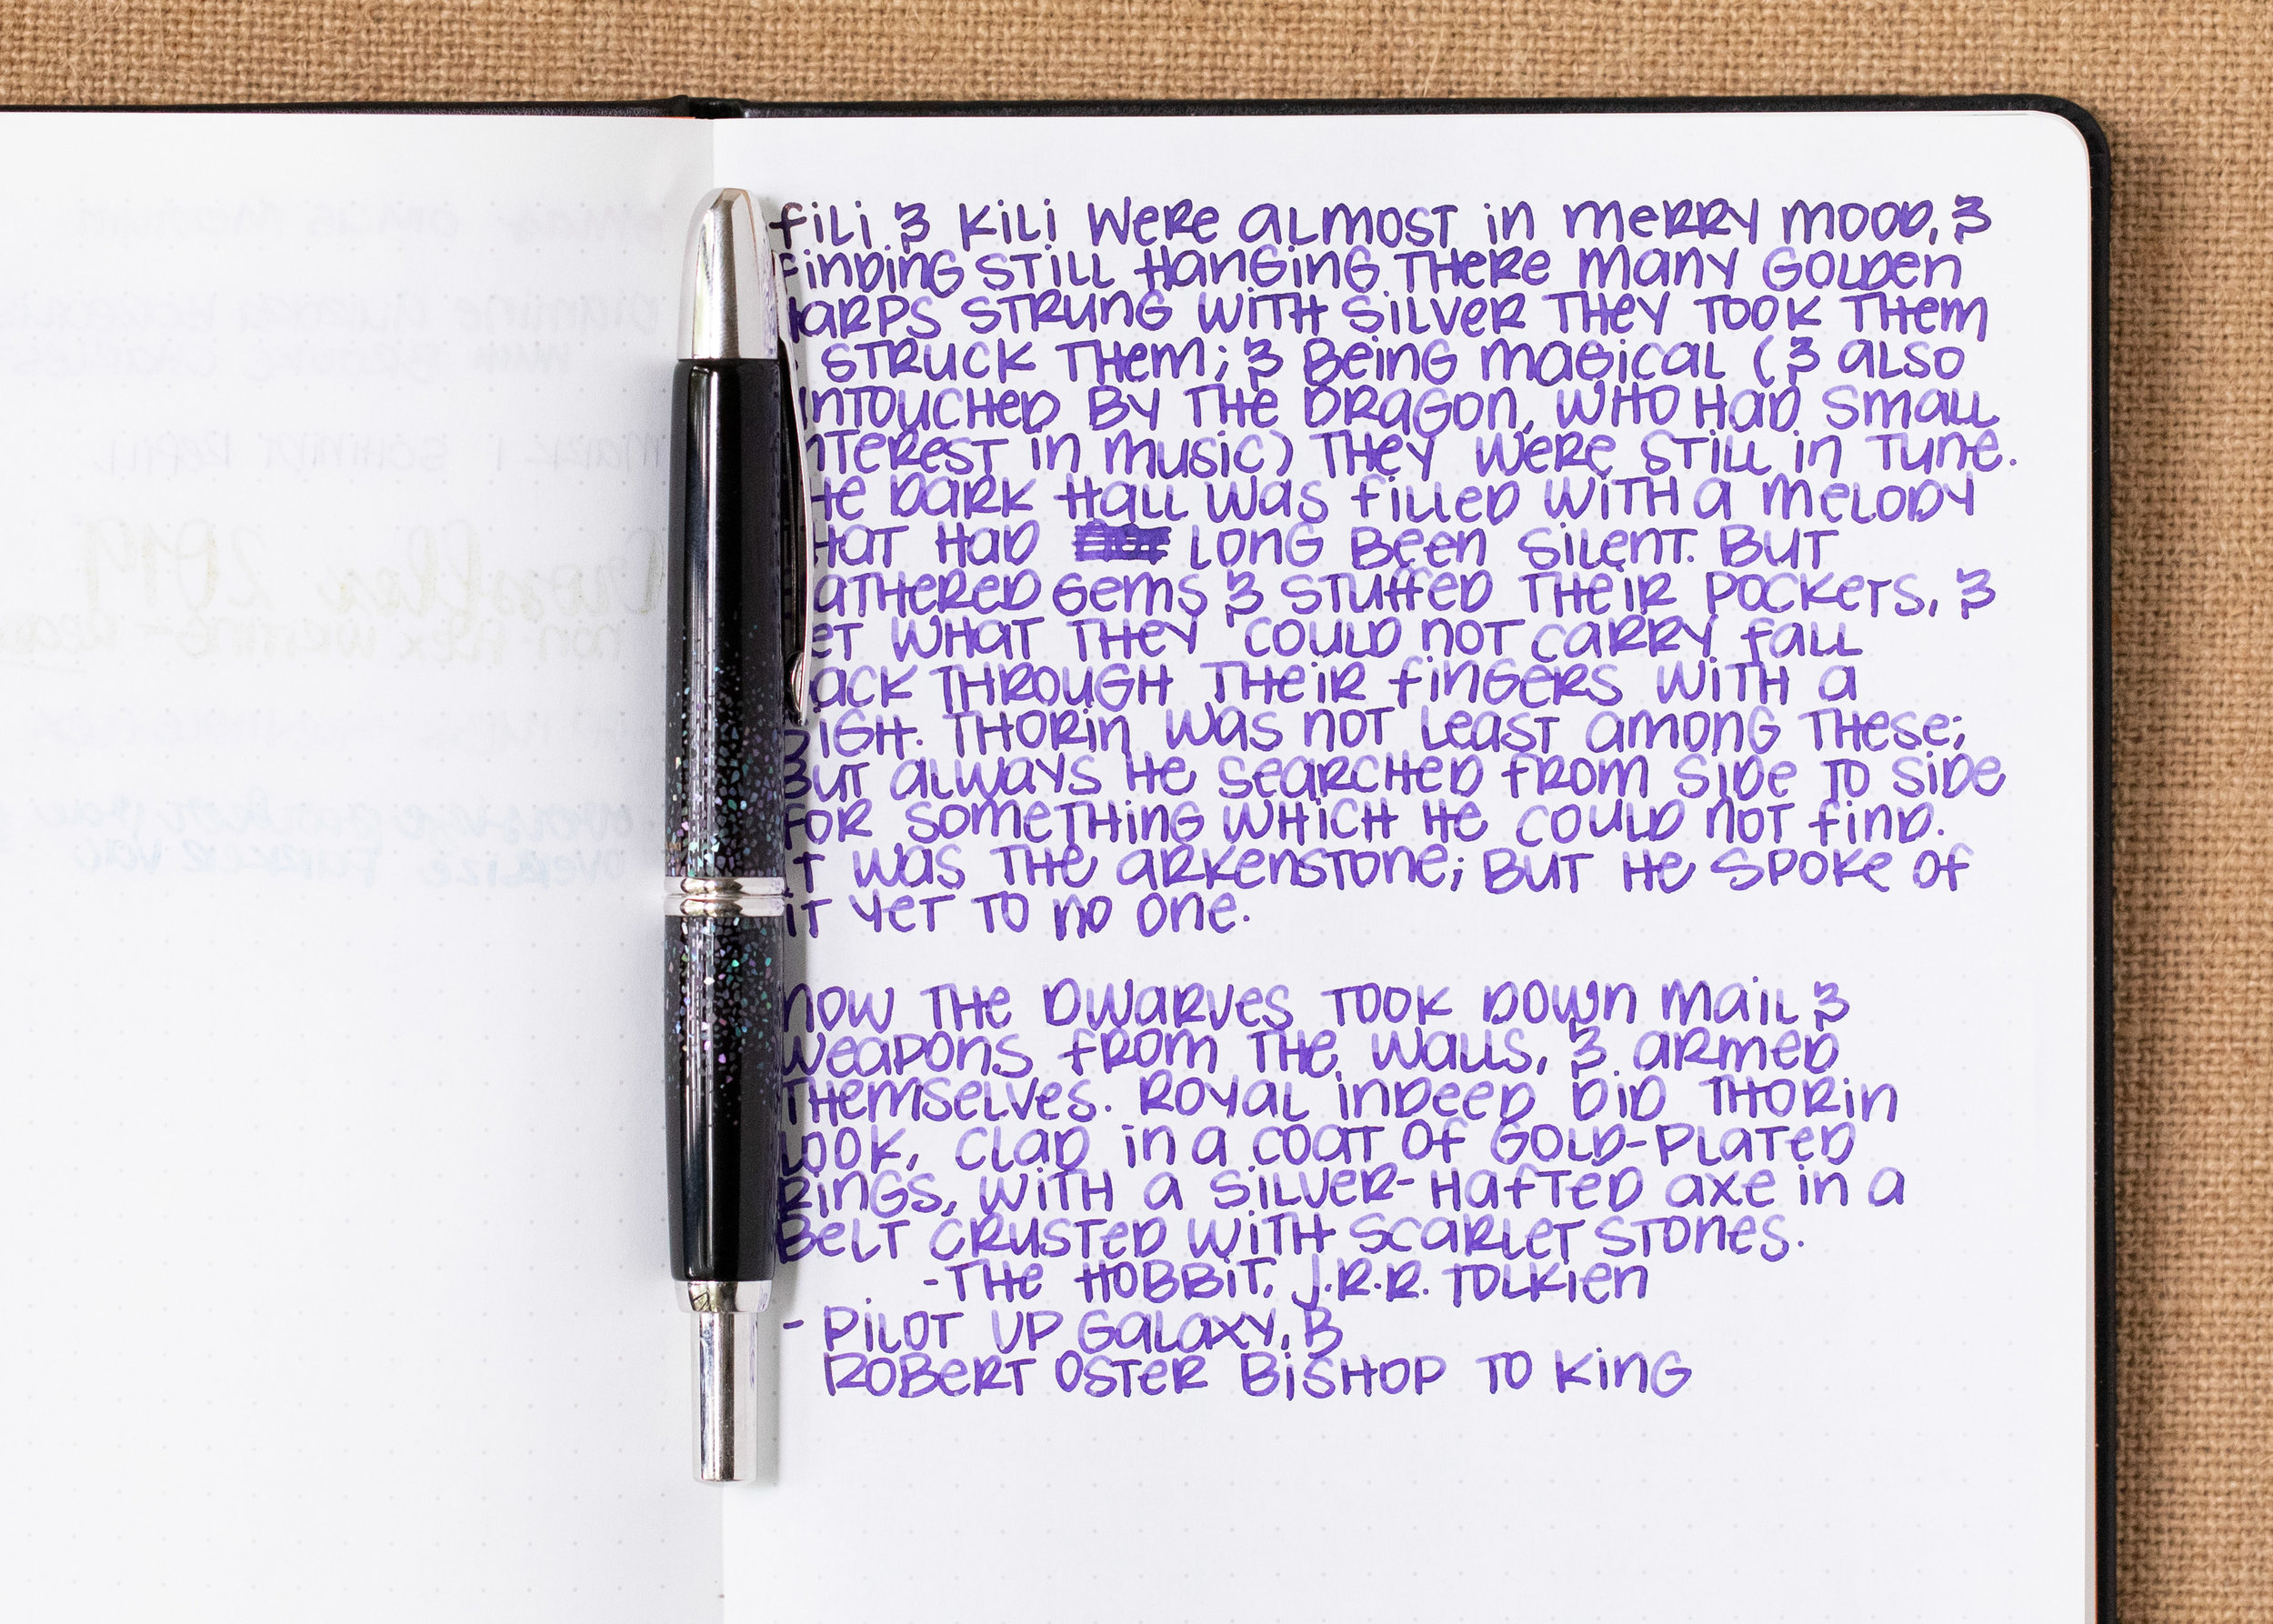 Fili & Kili were almost in merry mood, &
finding still hanging there many golden
harps strung with silver they took them
struck them; & being magical (& also
untouched by the dragon, who had small
interest in music) they were still in tune.
The dark hall was filled with a melody
that had long been silent. But
gathered gems & stuffed their pockets, &
let what they could not carry fall
back through their fingers with a
sigh. Thorin was not least among these;
but always he searched from side to side
for something which he could not find.
It was the Arkenstone; but he spoke of
it yet to no one.
Now the dwarves took down mail &
weapons from the walls, & armed
themselves. Royal indeed did Thorin
look, clad in a coat of gold-plated
rings, with a silver-hafted axe in a
belt crusted with scarlet stones.
- The Hobbit, J.R.R. Tolkien
- Pilot VP Galaxy, B
Robert Oster Bishop to King